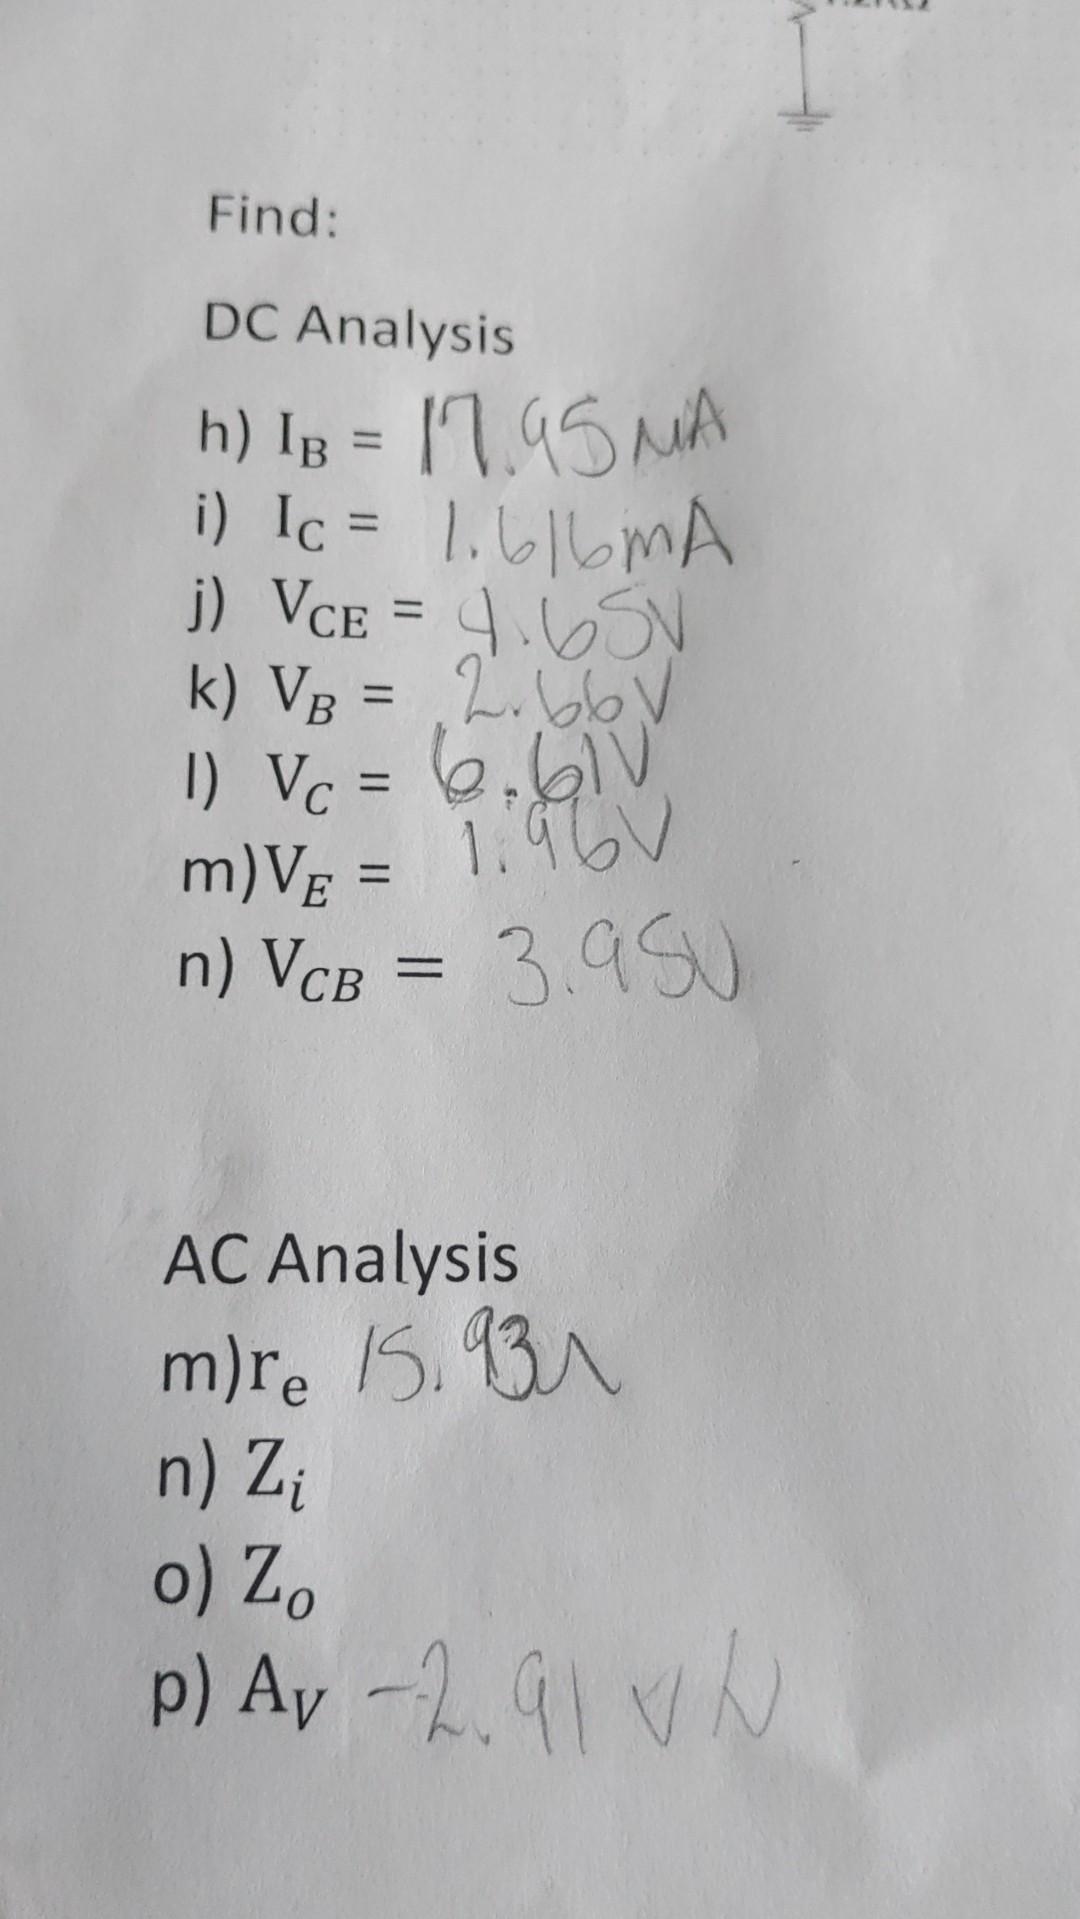 Find:
DC Analysis
h) I_B = 17.95 μA
i) I_C = 1.616mA
j) V_CE = 4.65V
k) V_B = 2.66V
l) V_C = 6.61V
m) V_E = 1.96V
n) V_CB = 3.95V
AC Analysis
m) r_e 15.93Ω
n) Z_i
o) Z_o
p) A_V -2.91